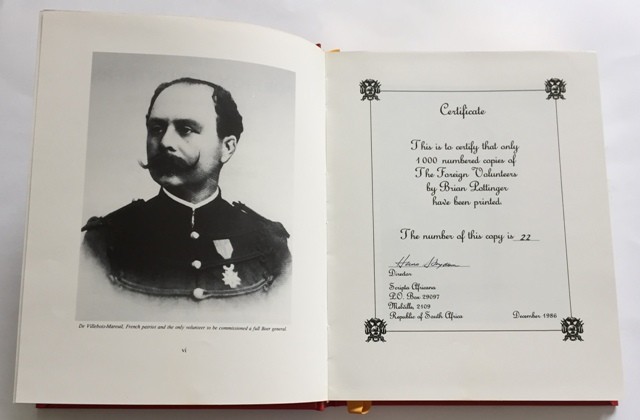 De Villebois-Mareuil, French patriot and the only volunteer to be commissioned a full Boer general.
vi
Certificate
This is to certify that only
1000 numbered copies of
The Foreign Volunteers
by Brian Pottinger
have been printed.
The number of this copy is 22
Director
Scripta Africana
P.O. Box 29097
Melville, 2109
Republic of South Africa
December 1986